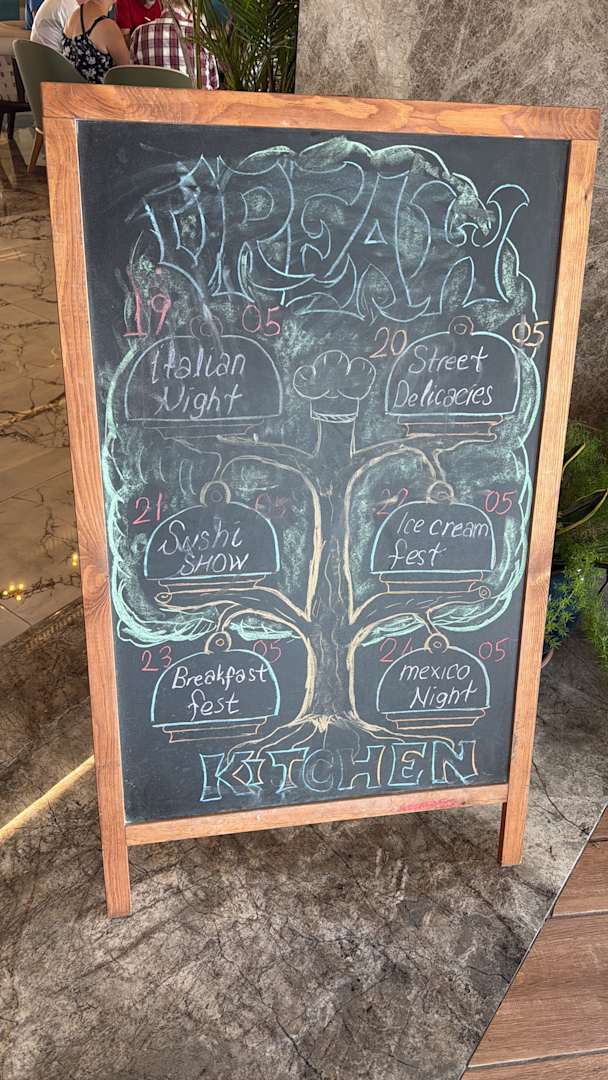 DREAM
19 05
Italian
Night
20 05
Street
Delicacies
21 05
Sushi
SHOW
22 05
Ice cream
fest
23 05
Breakfast
fest
24 05
mexico
Night
KITCHEN